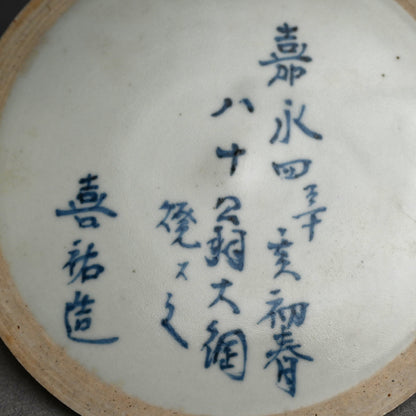 嘉永四辛亥初春
八十翁大綱
喜祐造